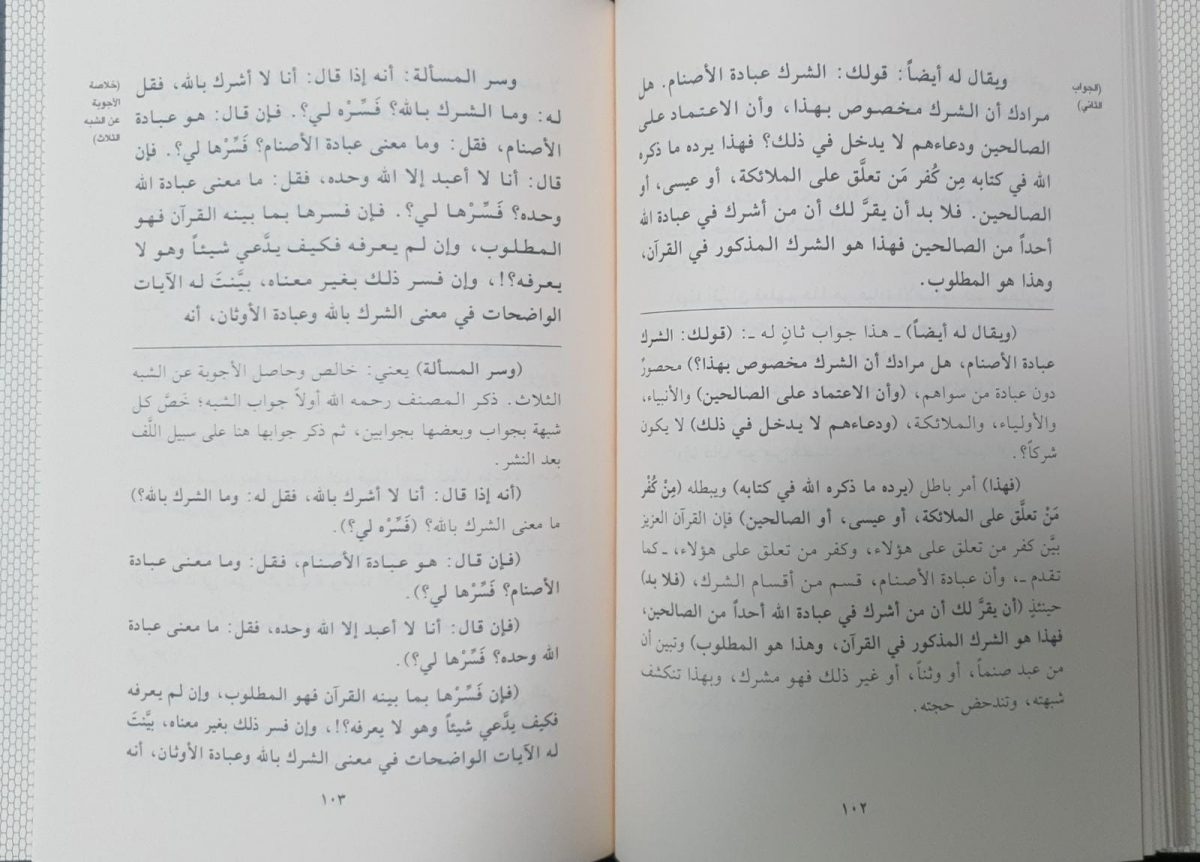 (الجواب
الثاني)
ويقال له أيضاً: قولك: الشرك عبادة الأصنام. هل
مرادك أن الشرك مخصوص بهذا، وأن الاعتماد على
الصالحين ودعاءهم لا يدخل في ذلك؟ فهذا يرده ما ذكره
الله في كتابه مِن كُفر مَن تعلَّق على الملائكة، أو عيسى، أو
الصالحين. فلا بد أن يقرَّ لك أن من أشرك في عبادة الله
أحداً من الصالحين فهذا هو الشرك المذكور في القرآن،
وهذا هو المطلوب.
(ويقال له أيضاً) ـ هذا جواب ثانٍ له ـ: (قولك: الشرك
عبادة الأصنام، هل مرادك أن الشرك مخصوص بهذا؟) محصورٌ
دون عبادة من سواهم، (وأن الاعتماد على الصالحين) والأنبياء،
والأولياء، والملائكة، (ودعاءهم لا يدخل في ذلك) لا يكون
شركاً؟.
(فهذا) أمر باطل (يرده ما ذكره الله في كتابه) ويبطله (مِنْ كُفْر
مَنْ تعلَّق على الملائكة، أو عيسى، أو الصالحين) فإن القرآن العزيز
بيَّن كفر من تعلق على هؤلاء، وكفر من تعلق على هؤلاء، ـ كما
تقدم ـ، وأن عبادة الأصنام، قسم من أقسام الشرك، (فلا بد)
حينئذٍ (أن يقرَّ لك أن من أشرك في عبادة الله أحداً من الصالحين،
فهذا هو الشرك المذكور في القرآن، وهذا هو المطلوب) وتبين أن
من عبد صنماً، أو وثناً، أو غير ذلك فهو مشرك، وبهذا تنكشف
شبهته، وتندحض حجته.
١٠٢
(خلاصة
الأجوبة
عن الشبه
الثلاث)
وسر المسألة: أنه إذا قال: أنا لا أشرك بالله، فقل
له: وما الشرك بالله؟ فَسِّرْه لي؟. فإن قال: هو عبادة
الأصنام، فقل: وما معنى عبادة الأصنام؟ فَسِّرْها لي؟. فإن
قال: أنا لا أعبد إلا الله وحده، فقل: ما معنى عبادة الله
وحده؟ فَسِّرْها لي؟. فإن فسرها بما بينه القرآن فهو
المطلوب، وإن لم يعرفه فكيف يدَّعي شيئاً وهو لا
يعرفه؟!، وإن فسر ذلك بغير معناه، بيَّنتَ له الآيات
الواضحات في معنى الشرك بالله وعبادة الأوثان، أنه
(وسر المسألة) يعني: خالص وحاصل الأجوبة عن الشبه
الثلاث. ذكر المصنف رحمه الله أولاً جواب الشبه؛ خَصَّ كل
شبهة بجواب وبعضها بجوابين، ثم ذكر جوابها هنا على سبيل اللَّف
بعد النشر.
(أنه إذا قال: أنا لا أشرك بالله، فقل له: وما الشرك بالله؟)
ما معنى الشرك بالله؟ (فَسِّرْه لي؟).
(فإن قال: هو عبادة الأصنام، فقل: وما معنى عبادة
الأصنام؟ فَسِّرْها لي؟).
(فإن قال: أنا لا أعبد إلا الله وحده، فقل: ما معنى عبادة
الله وحده؟ فَسِّرْها لي؟).
(فإن فَسِّرْها بما بينه القرآن فهو المطلوب، وإن لم يعرفه
فكيف يدَّعي شيئاً وهو لا يعرفه؟!، وإن فسر ذلك بغير معناه، بيَّنتَ
له الآيات الواضحات في معنى الشرك بالله وعبادة الأوثان، أنه
١٠٣